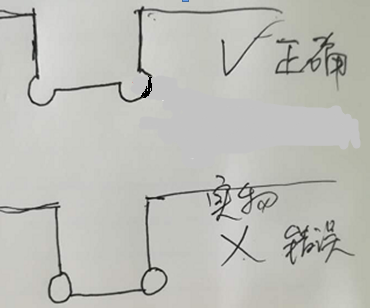 √ 正确
实物
× 错误